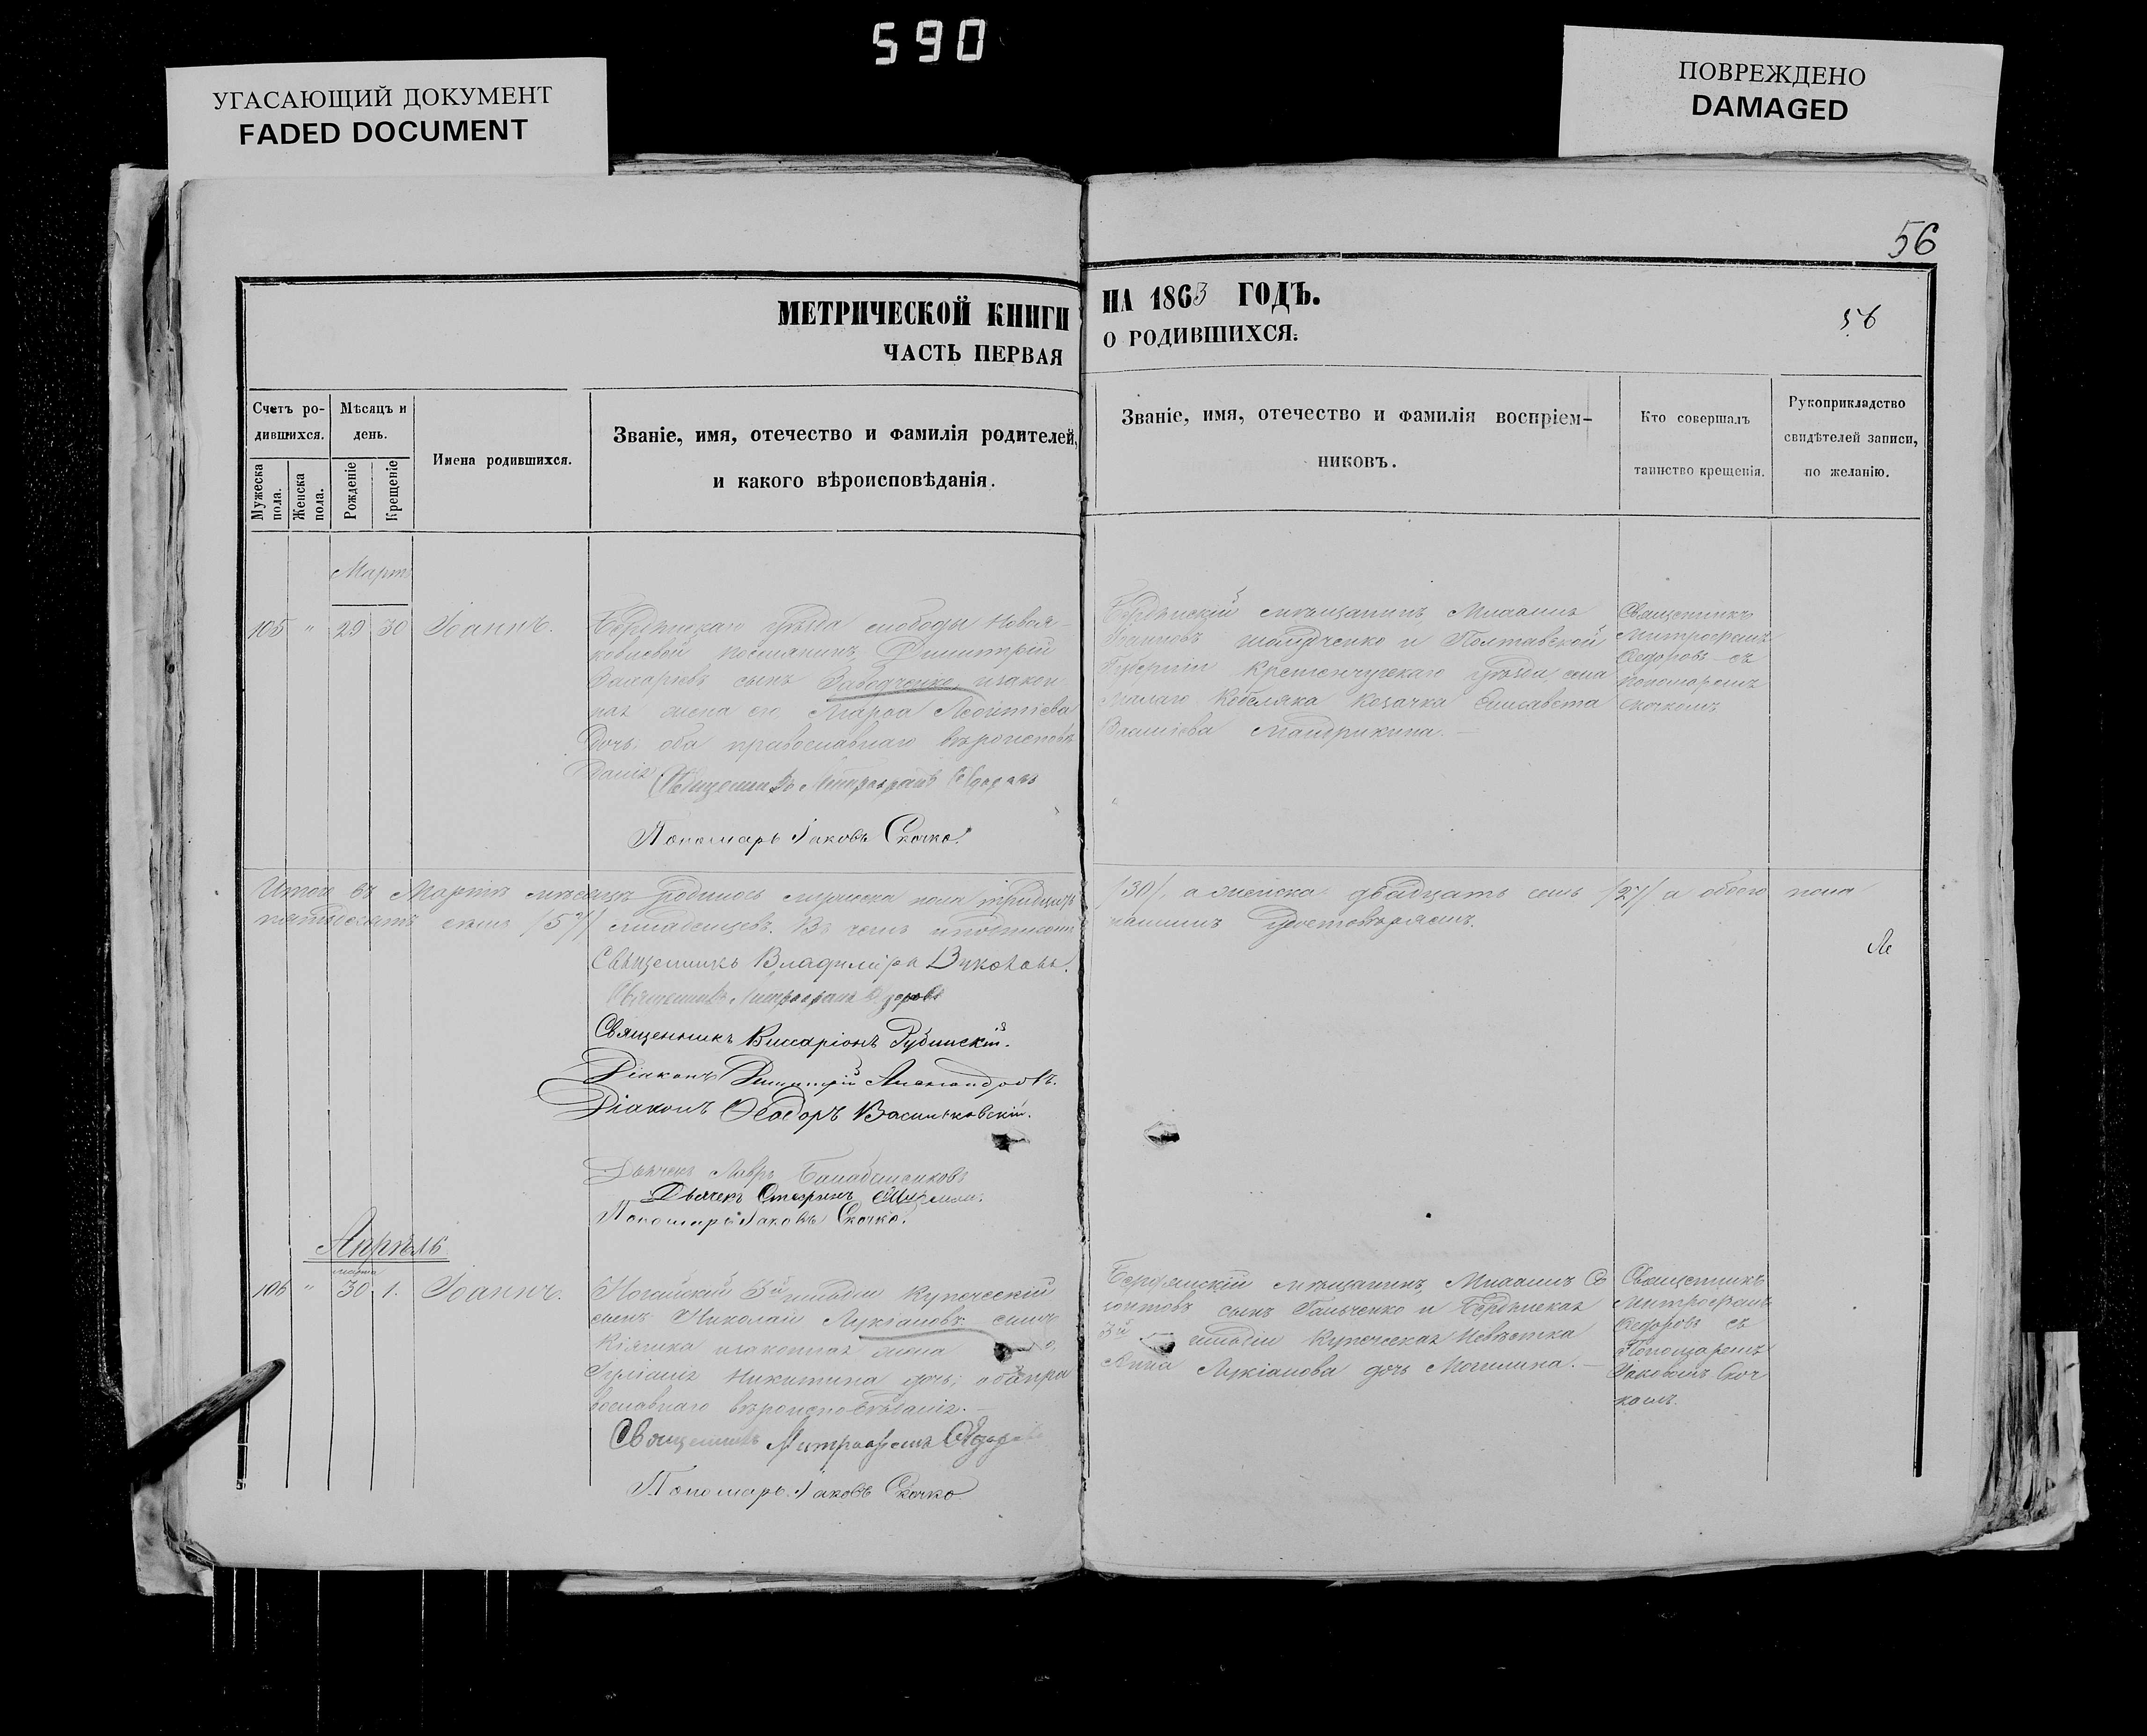 590
УГАСАЮЩИЙ ДОКУМЕНТ
FADED DOCUMENT
ПОВРЕЖДЕНО
DAMAGED
56
МЕТРИЧЕСКОЙ КНИГИ НА 1863 ГОДЪ.
56
ЧАСТЬ ПЕРВАЯ О РОДИВШИХСЯ:
Счетъ ро-
дившихся.
Мужеска пола.
Женска пола.
Мѣсяцъ и
день.
Рожденіе
Крещеніе
Имена родившихся.
Званіе, имя, отечество и фамилія родителей,
и какого вѣроисповѣданія.
Званіе, имя, отечество и фамилія воспріем-
никовъ.
Кто совершалъ
таинство крещенія.
Рукоприкладство
свидѣтелей записи,
по желанію.
Мартъ
105 " 29 30 Іоаннъ.
Бердянскаго уѣзда слободы Новоя-
поселянинъ Димитрій
сынъ Заводченко, и закон
ная жена его, Марѳа Леонтіева
дочь, оба православнаго вѣроисповѣ
данія
Священникъ Митрофанъ Ѳедоровъ
Пономарь Іаковъ Скочко.
Бердянскій мѣщанинъ Михаилъ
и Полтавской
Губерніи Кременчугскаго уѣзда села
Малаго Кобеляка козачка Елисавета
Василіева
Священникъ
Митрофанъ
Ѳедоровъ съ
пономаремъ
Скочкомъ
Итого въ Мартѣ мѣсяцѣ родилось мужеска пола тридцать /30/, а женска двадцать семь /27/ а обоего пола
пятьдесятъ семь /57/ младенцевъ. Въ чемъ и подписомъ нашимъ удостовѣряемъ.
Священникъ Владиміръ
Священникъ Митрофанъ Ѳедоровъ
Священникъ Виссаріонъ Рубинскій.
Діаконъ Димитрій Александровъ.
Діаконъ Ѳеодоръ Васильковскій.
Дьячекъ Лавръ
Дьячекъ Стефанъ
Пономарь Іаковъ Скочко.
Апрѣль
марта
106 " 30 1. Іоаннъ.
Ногайскій 3й гильдіи купеческій
сынъ Николай Лукіановъ сынъ
и законная жена
Никитина дочь, оба пра
вославнаго вѣроисповѣданія.
Священникъ Митрофанъ Ѳедоровъ
Пономарь Іаковъ Скочко
Бердянскій мѣщанинъ Михаилъ
сынъ Гальченко и Бердянская
3й гильдіи купеческая невѣстка
Анна Лукіанова дочь Могилина.
Священникъ
Митрофанъ
Ѳедоровъ съ
Пономаремъ
Іаковомъ Скоч
комъ.